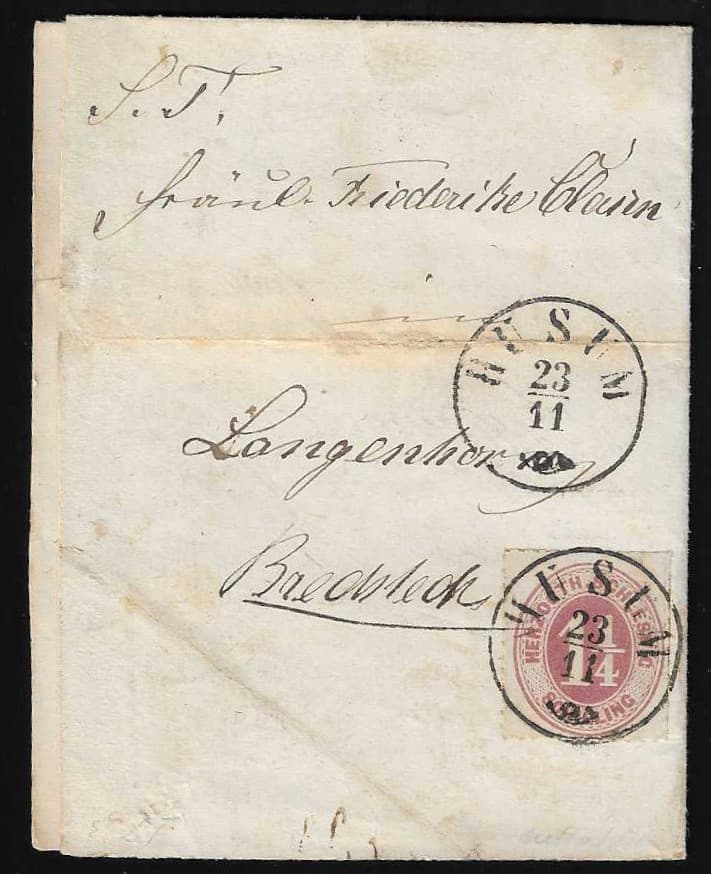 S. T.
Fräul. Friederike Clausen
in
HUSUM
23
11
Langenhorn
Bredstedt
HUSUM
23
11
HERZOGTH SCHLESWIG
1¼
SCHILLING